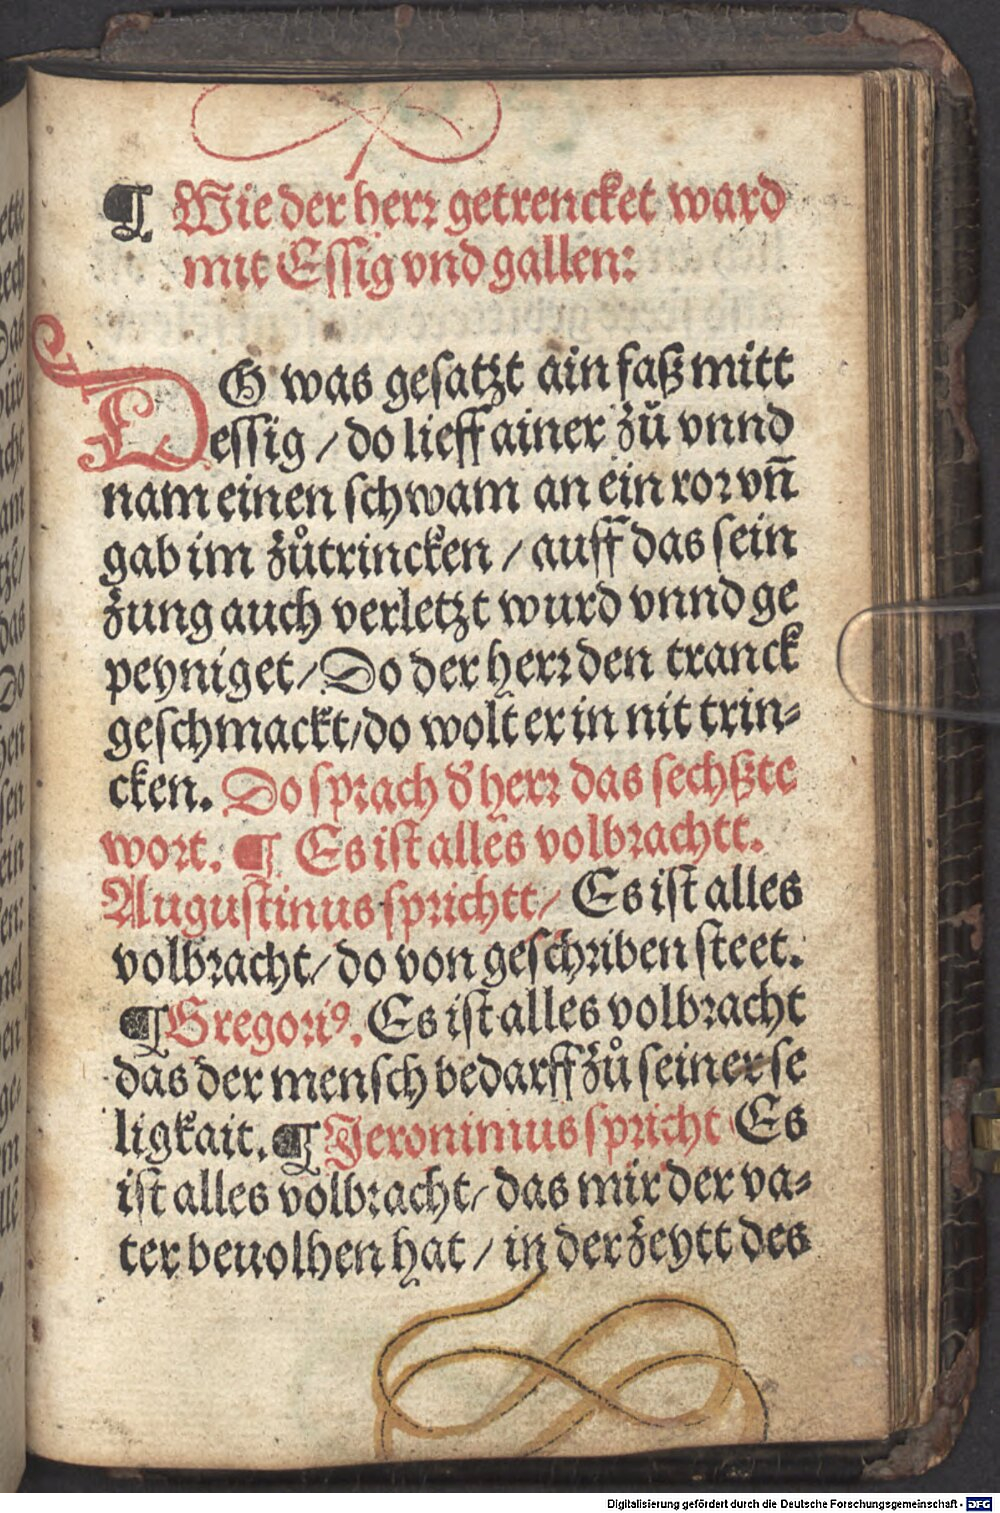 ¶ Wie der herr getrencket ward
mit Essig vnd gallen:
DO was gesatzt ain faß mitt
essig / do lieff ainer zů vnnd
nam einen schwam an ein ror vn̄
gab im zůtrincken / auff das sein
zung auch verletzt wurd vnnd ge
peyniget / Do der herr den tranck
geschmackt / do wolt er in nit trin⸗
cken. Do sprach d̕ herr das sechßte
wort. ¶ Es ist alles volbrachtt.
Augustinus sprichtt / Es ist alles
volbracht / do von geschriben steet.
¶ Gregoriꝰ. Es ist alles volbracht
das der mensch bedarff zů seiner se
ligkait. ¶ Jeronimus spricht Es
ist alles volbracht / das mir der va⸗
ter beuolhen hat / in der zeytt des
Digitalisierung gefördert durch die Deutsche Forschungsgemeinschaft - DFG